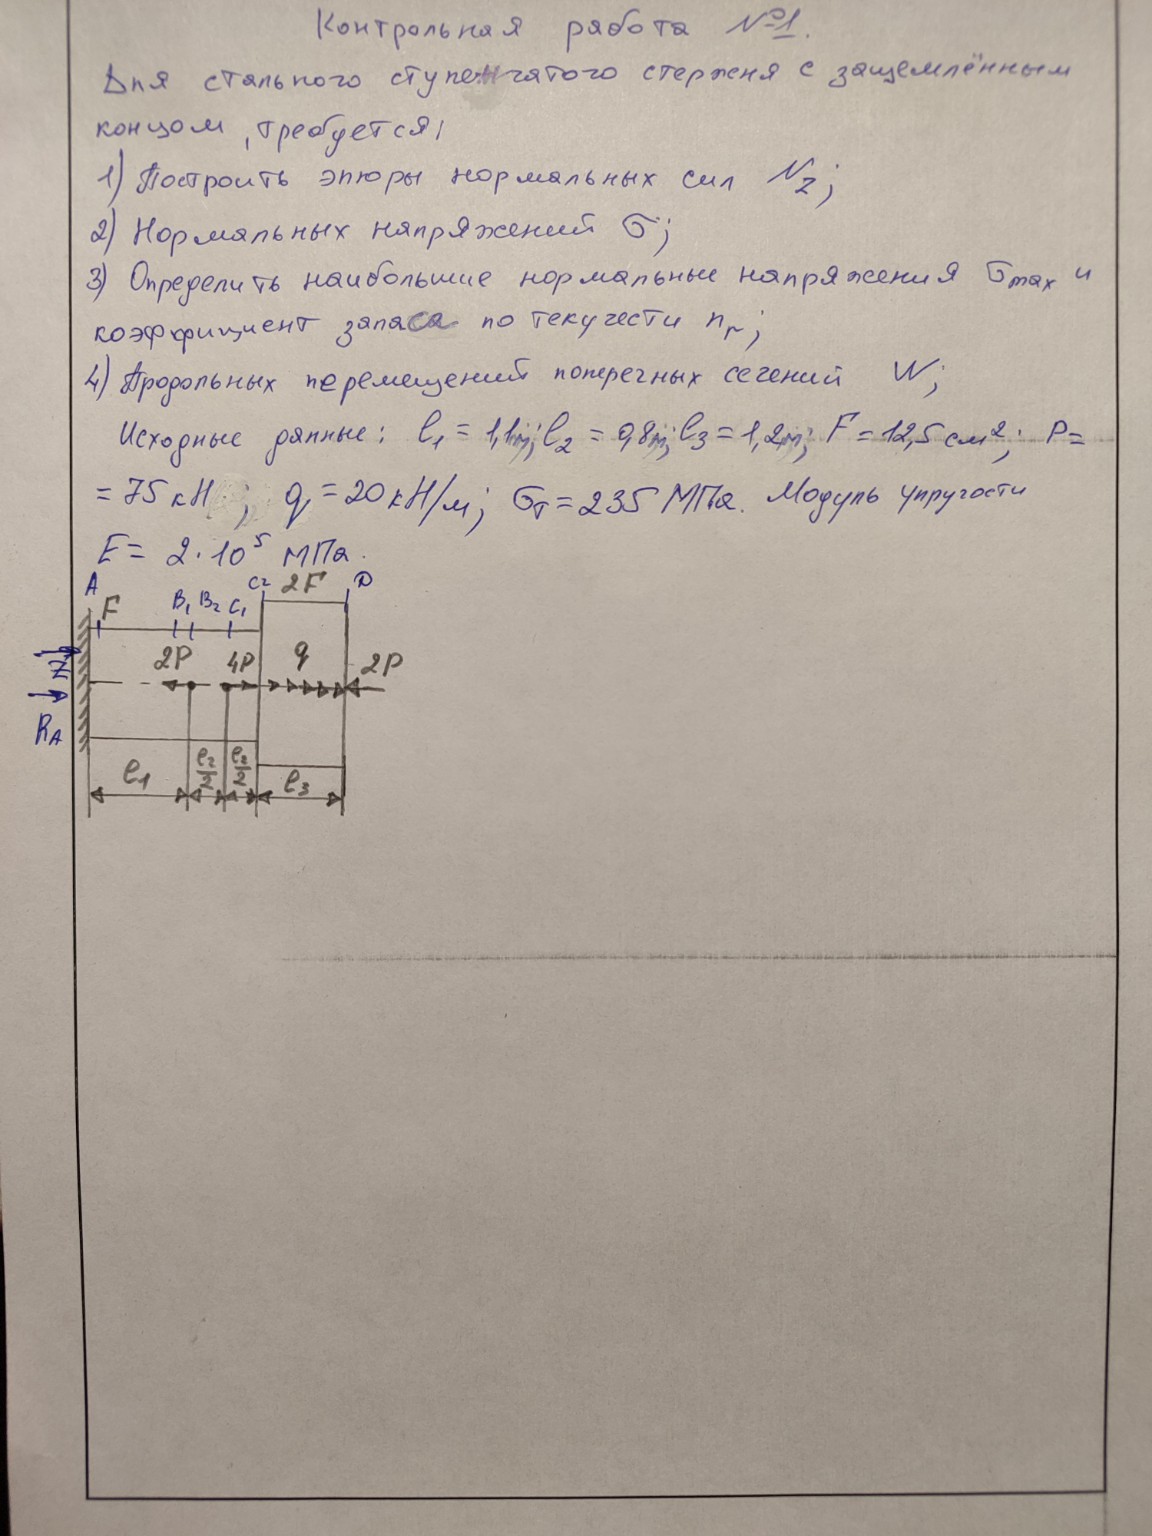 Контрольная работа №1.
Для стального ступенчатого стержня с защемлённым
концом, требуется:
1) Построить эпюры нормальных сил Nz;
2) Нормальных напряжений σ;
3) Определить наибольшие нормальные напряжения σmax и
коэффициент запаса по текучести nт;
4) Продольных перемещений поперечных сечений W;
Исходные данные: l1 = 1,1м; l2 = 0,8м; l3 = 1,2м; F = 12,5 см²; P=
= 75 кН ; q = 20 кН/м; σт = 235 МПа. Модуль упругости
E = 2·10⁵ МПа.
A F B1 B2 C1 C2 2F D
2P 4P q 2P
RA
l1 l2/2 l2/2 l3